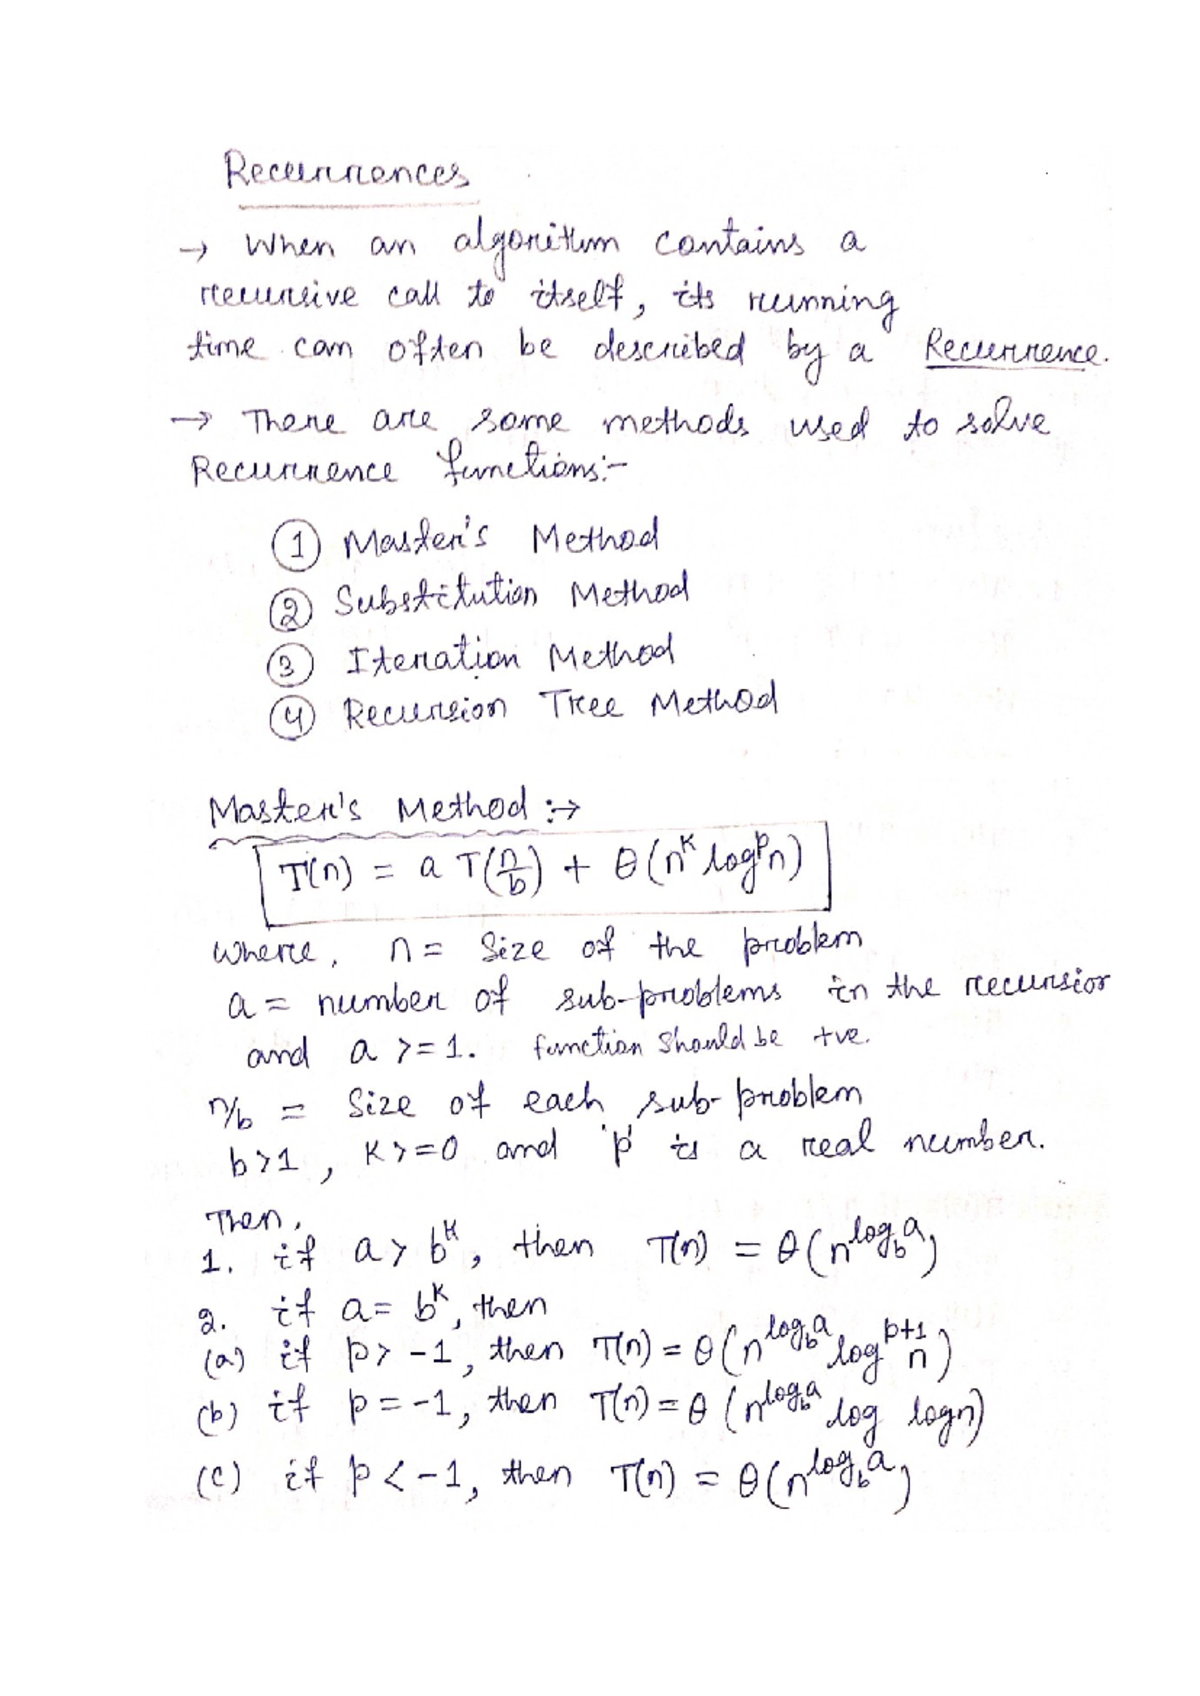 Recurrences
→ When an algorithm contains a
recursive call to itself, its running
time can often be described by a Recurrence.
→ There are some methods used to solve
Recurrence functions:-
① Master's Method
② Substitution Method
③ Iteration Method
④ Recursion Tree Method
Master's Method :→
T(n) = a T(n/b) + θ(n^k log^p n)
Where, n = Size of the problem
a = number of sub-problems in the recursion
and a >= 1. function should be +ve.
n/b = Size of each sub-problem
b>1, K>=0 and 'p' is a real number.
Then,
1. if a > b^k, then T(n) = θ(n^log_b a)
2. if a = b^k, then
(a) if p > -1, then T(n) = θ(n^log_b a log^p+1 n)
(b) if p = -1, then T(n) = θ(n^log_b a log logn)
(c) if p < -1, then T(n) = θ(n^log_b a)